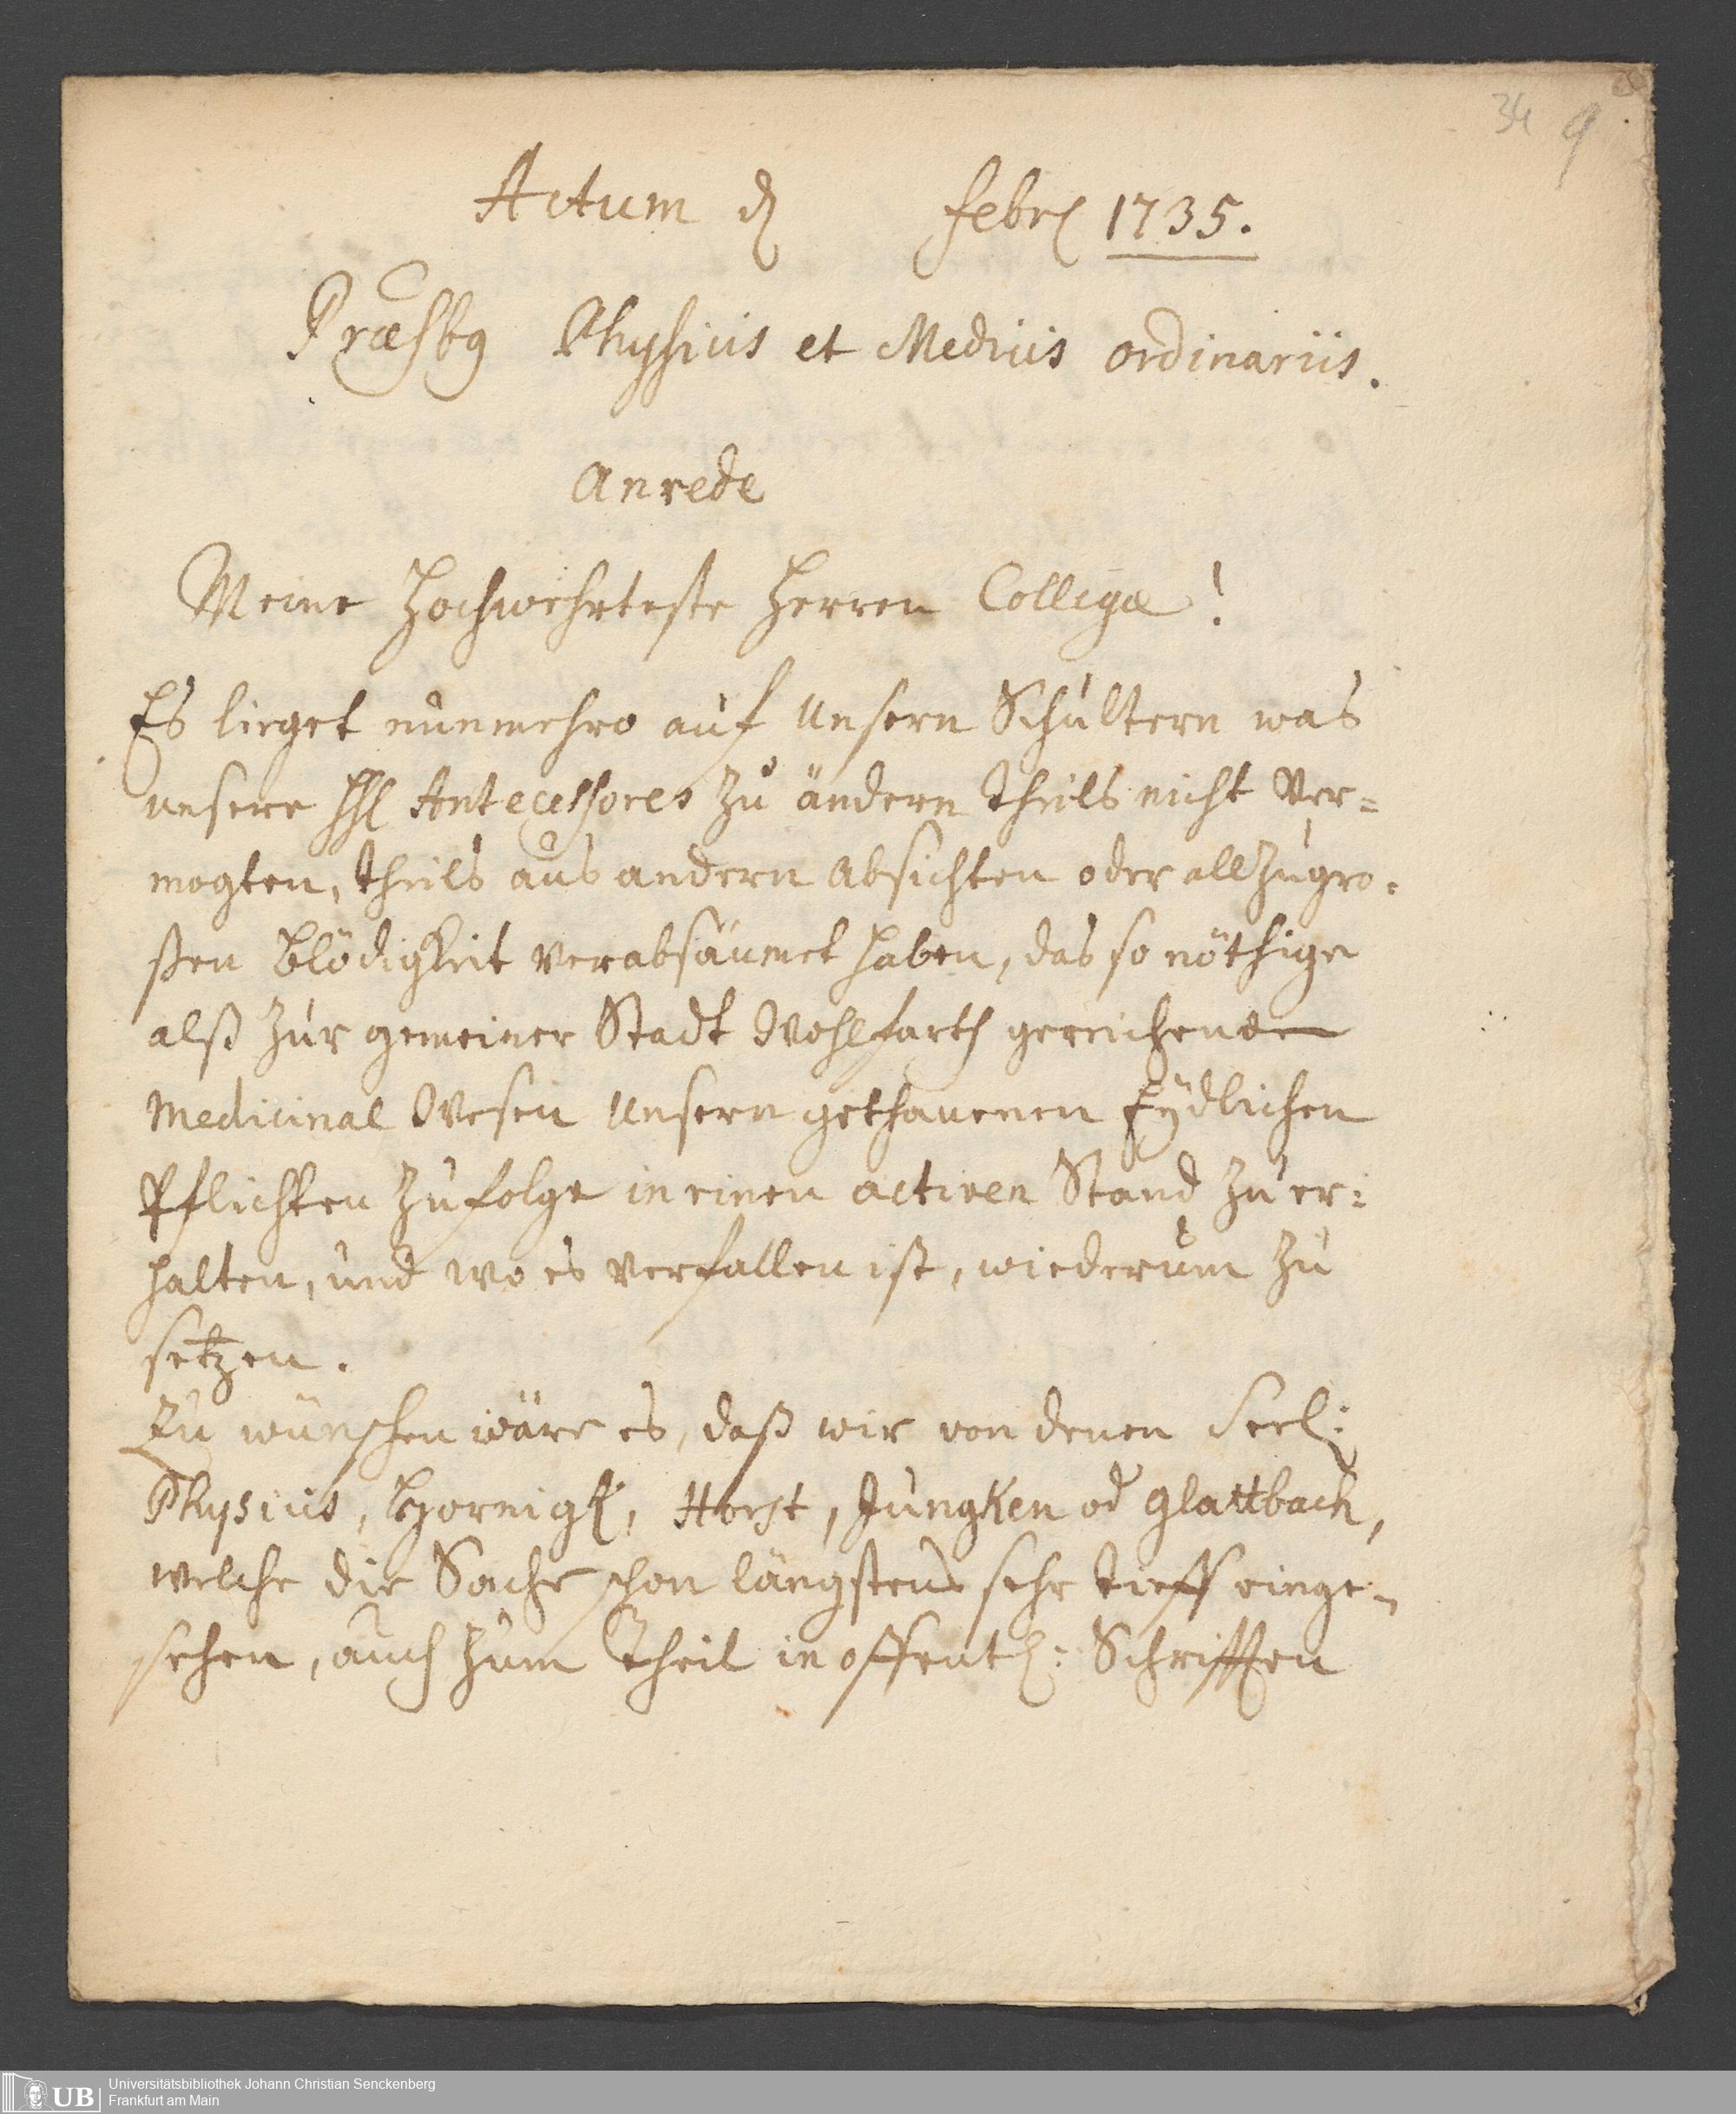 34 9
Actum d Febr 1735.
Præsbg Physicis et Medicis ordinariis.
Anrede
Meine Hochwehrteste Herren Collegæ!
Es lieget nunmehro auf Unsern Schultern was
unsere HHl Antecessores zu ändern theils nicht Ver=
mogten, theils aus andern Absichten oder allzugro=
ßen Blödigkeit verabsäumet haben, das so nöthige
alß zur gemeiner Stadt Wohlfarth gereichende
Medicinal Wesen Unsern gethanenen Eÿdlichen
Pflichten zu folge in einen activen Stand zu er=
halten, und wo es verfallen ist, wiederum zu
setzen.
Zu wünschen wäre es, daß wir von denen Seel:
Physicis, Hornigk, Horst, Jungken od Glattbach,
welche die Sache schon längstens sehr tieff einge=
sehen, auch zum Theil in offentl: Schrifften
UB Universitätsbibliothek Johann Christian Senckenberg
Frankfurt am Main